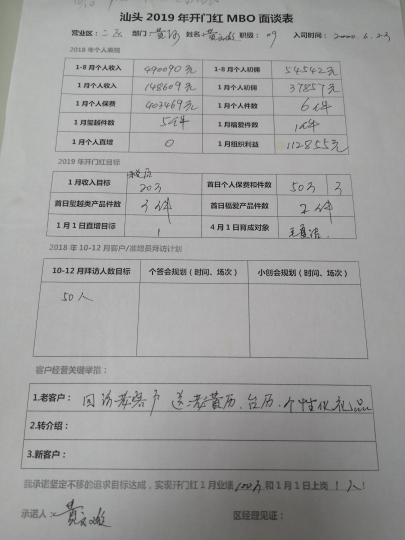 汕头 2019 年开门红 MBO 面谈表
营业区：二区 部门：黄河 姓名： 职级：09 入司时间：2000.6.23
2018 年个人来阅
1-8 月个人收入 490090元 1-8 月个人初佣 54542元
1 月个人收入 148609元 1 月个人初佣 37857元
1 月个人保费 403469元 1 月个人件数 6件
1 月玺越件数 5件 1 月福爱件数 1件
1 月个人直增 0 1 月组织利益 112855元
2019 年开门红目标
1 月收入目标 税后 20万 首日个人保费和件数 50万 3
首日玺越类产品件数 3件 首日福爱产品件数 2件
1 月 1 日直增目标 1 4 月 1 日育成对象
2018 年 10-12 月客户/准增员拜访计划
10-12 月拜访人数目标 个答会规划（时间、场次） 小创会规划（时间、场次）
50人
客户经营关键举措：
1.老客户： 回访老客户 送老黄历、台历、个性化礼品
2.转介绍：
3.新客户：
我承诺坚定不移的追求目标达成，实现开门红 1 月业绩100万和 1 月 1 日上岗 1 人！
承诺人： 区经理见证：